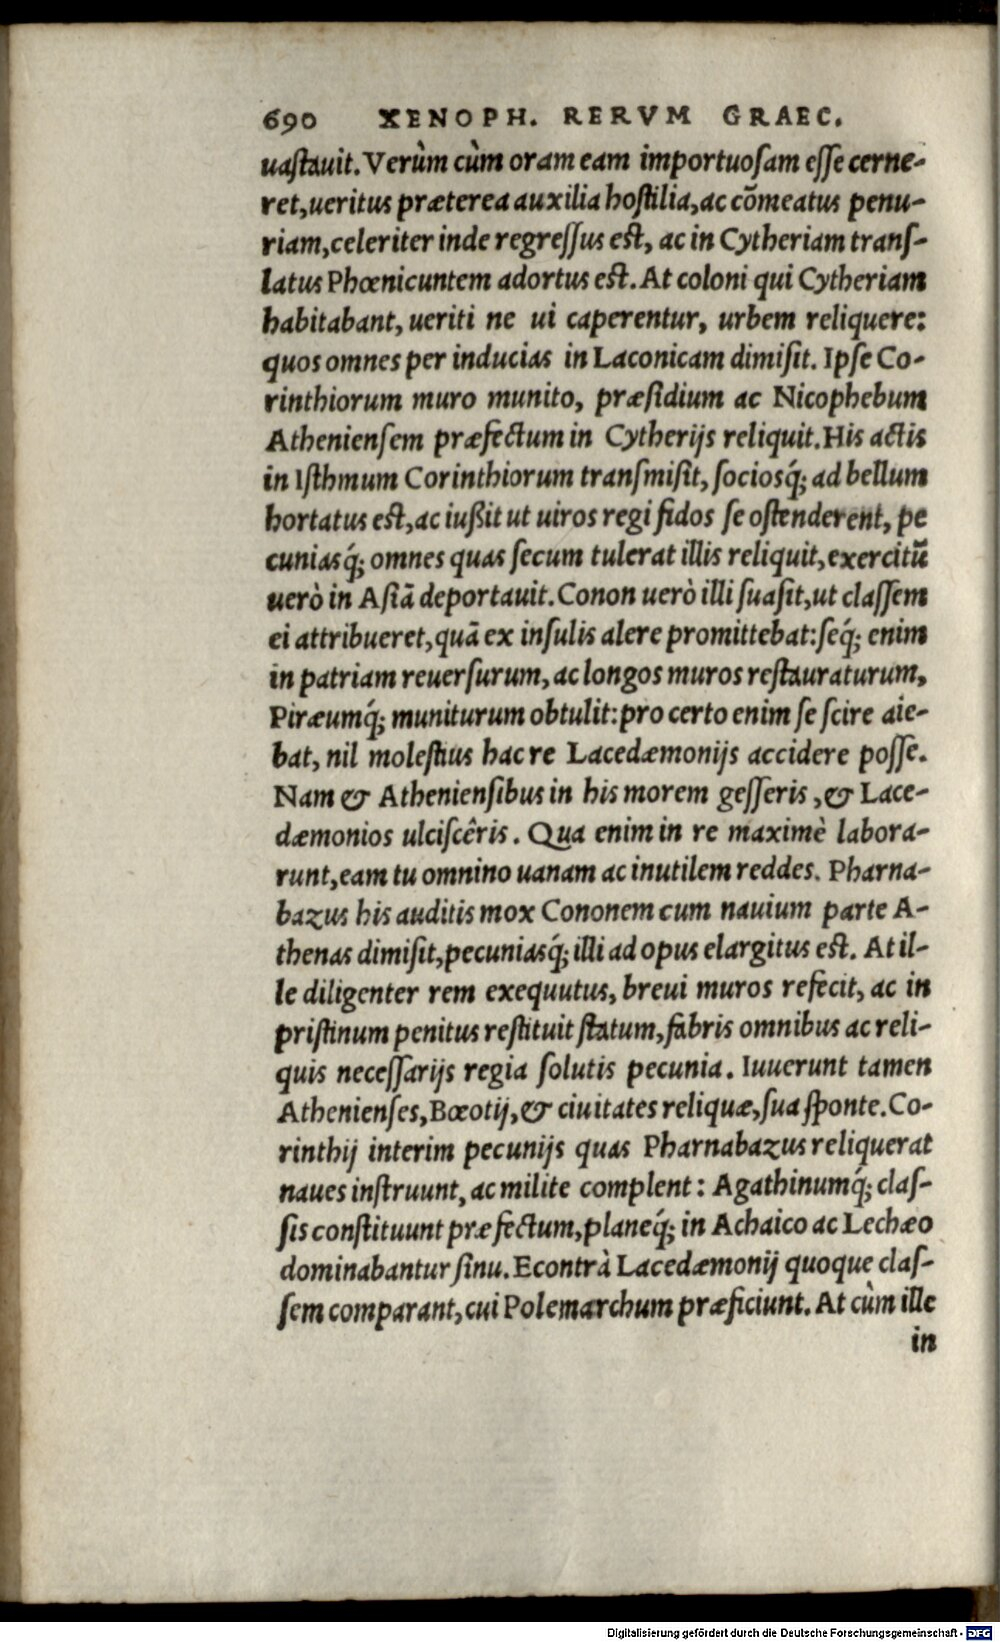 690 XENOPH. RERVM GRAEC.
uastauit. Verùm cùm oram eam importuosam esse cerne-
ret, ueritus præterea auxilia hostilia, ac cōmeatus penu-
riam, celeriter inde regressus est, ac in Cytheriam trans-
latus Phœnicuntem adortus est. At coloni qui Cytheriam
habitabant, ueriti ne ui caperentur, urbem reliquere:
quos omnes per inducias in Laconicam dimisit. Ipse Co-
rinthiorum muro munito, præsidium ac Nicophebum
Atheniensem præfectum in Cytherijs reliquit. His actis
in Isthmum Corinthiorum transmisit, sociosq́; ad bellum
hortatus est, ac iußit ut uiros regi fidos se ostenderent, pe
cuniasq́; omnes quas secum tulerat illis reliquit, exercitū
uerò in Asiā deportauit. Conon uerò illi suasit, ut classem
ei attribueret, quā ex insulis alere promittebat: seq́; enim
in patriam reuersurum, ac longos muros restauraturum,
Piræumq́; muniturum obtulit: pro certo enim se scire aie-
bat, nil molestius hac re Lacedæmonijs accidere posse.
Nam & Atheniensibus in his morem gesseris, & Lace-
dæmonios ulciscêris. Qua enim in re maximè labora-
runt, eam tu omnino uanam ac inutilem reddes. Pharna-
bazus his auditis mox Cononem cum nauium parte A-
thenas dimisit, pecuniasq́; illi ad opus elargitus est. At il-
le diligenter rem exequutus, breui muros refecit, ac in
pristinum penitus restituit statum, fabris omnibus ac reli-
quis necessarijs regia solutis pecunia. Iuuerunt tamen
Athenienses, Bœotij, & ciuitates reliquæ, sua sponte. Co-
rinthij interim pecunijs quas Pharnabazus reliquerat
naues instruunt, ac milite complent: Agathinumq́; clas-
sis constituunt præfectum, planeq́; in Achaico ac Lechæo
dominabantur sinu. Econtrà Lacedæmonij quoque clas-
sem comparant, cui Polemarchum præficiunt. At cùm ille
in
Digitalisierung gefördert durch die Deutsche Forschungsgemeinschaft - DFG